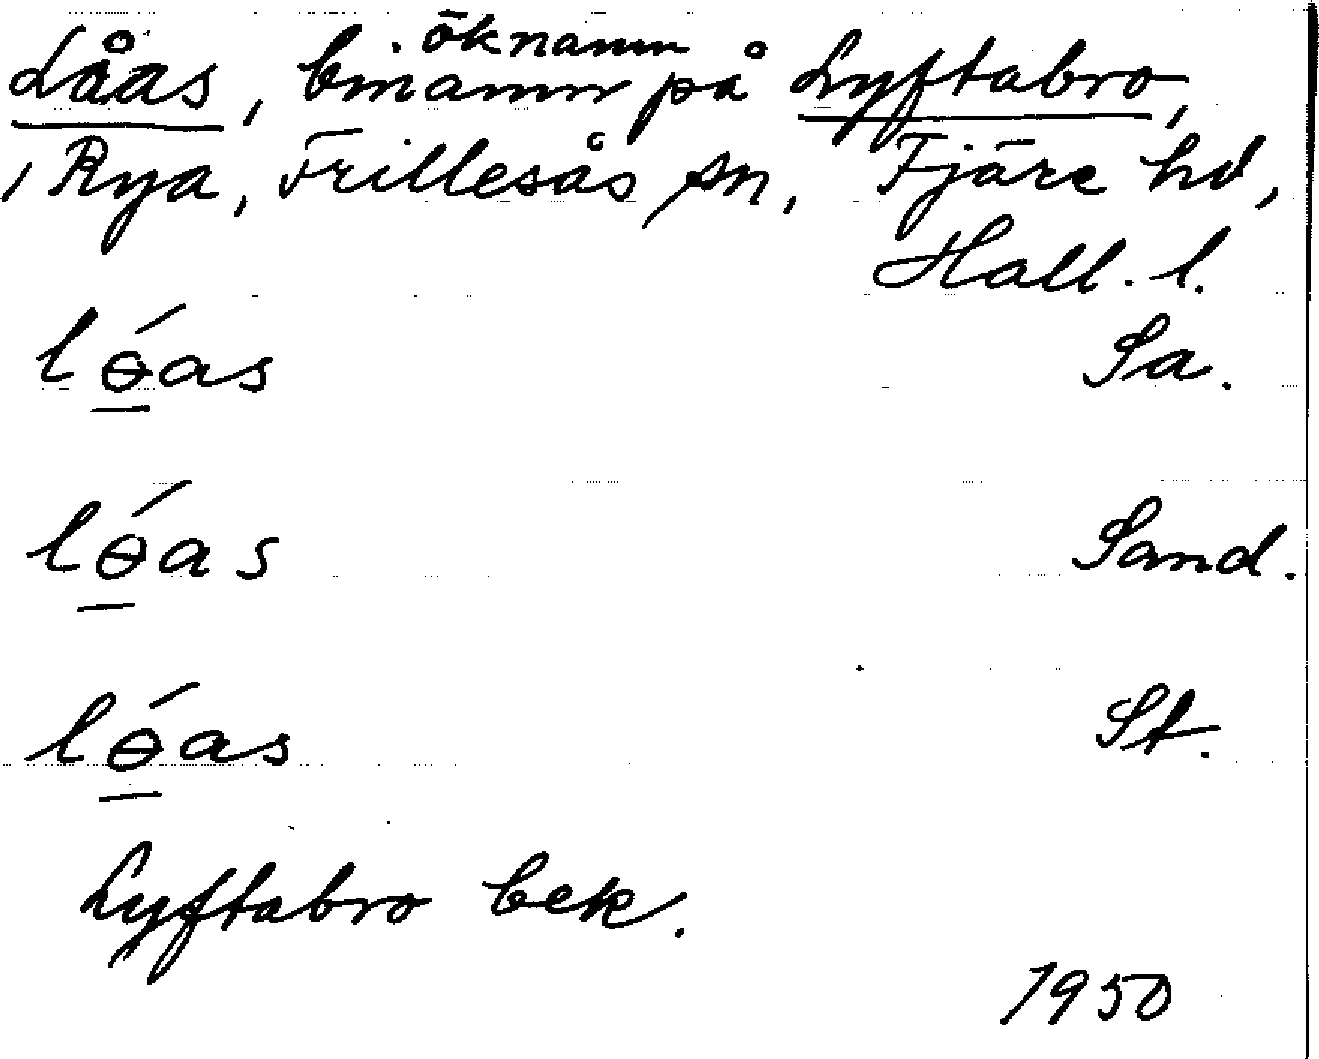 öknamn
Låas, binamn på Lyftabro,
, Rya, Frillesås sn, Fjäre hd,
Hall. l.
lɵ́as Sa.
lɵ́as Sand.
lɵ́as St.
Lyftabro bek.
1950